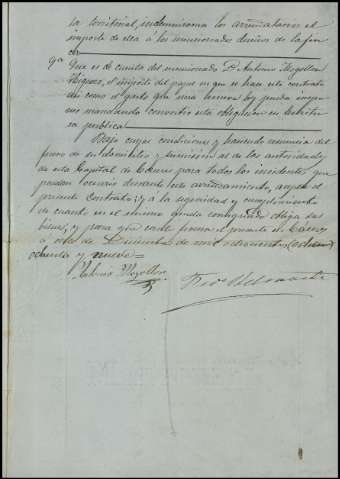 la territorial, indemnizara los arrendatarios el
importe de ella á los mencionados dueños de la fin
ca
9ª Que es de cuenta del mencionado D. Antonio Mogollon
el importe del papel en que se hace este contrato
asi como el gasto que una hemos hoy pueda
mandando convertir esta obligacion en escritu
ra publica
Bajo cuyas condiciones y haciendo renuncia del
fuero de su domicilio y sumision al de las autoridades
de esta Capital de Cáceres para todos los incidentes que
puedan ocurrir durante este arrendamiento, aceptan el
presente Contrato; y á la seguridad y cumplimiento
de cuanto en el mismo queda consignado obliga sus
bienes; y para que conste firma el presente en Cáceres
á de Diciembre de mil ochocientos (ochen)
ochenta y nueve=
Antonio Mogollon